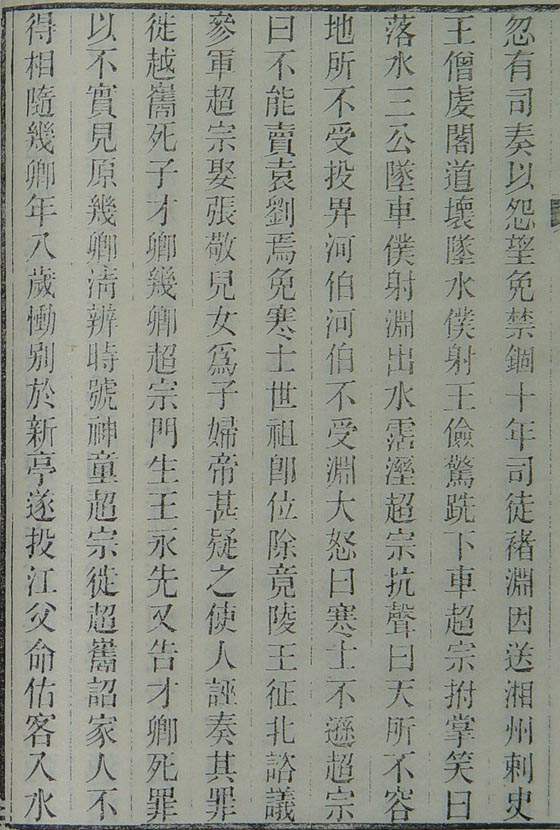 忽有司奏以怨望免禁錮十年司徒褚淵因送湘州刺史
王僧虔閣道壞墜水僕射王儉驚跣下車超宗拊掌笑曰
落水三公墜車僕射淵出水霑溼超宗抗聲曰天所不容
地所不受投畀河伯河伯不受淵大怒曰寒士不遜超宗
曰不能賣袁劉焉免寒士世祖卽位除竟陵王征北諮議
參軍超宗娶張敬兒女爲子婦帝甚疑之使人誣奏其罪
徙越巂死子才卿幾卿超宗門生王永先又告才卿死罪
以不實見原幾卿清辨時號神童超宗徙超巂詔家人不
得相隨幾卿年八歲慟別於新亭遂投江父命估客入水